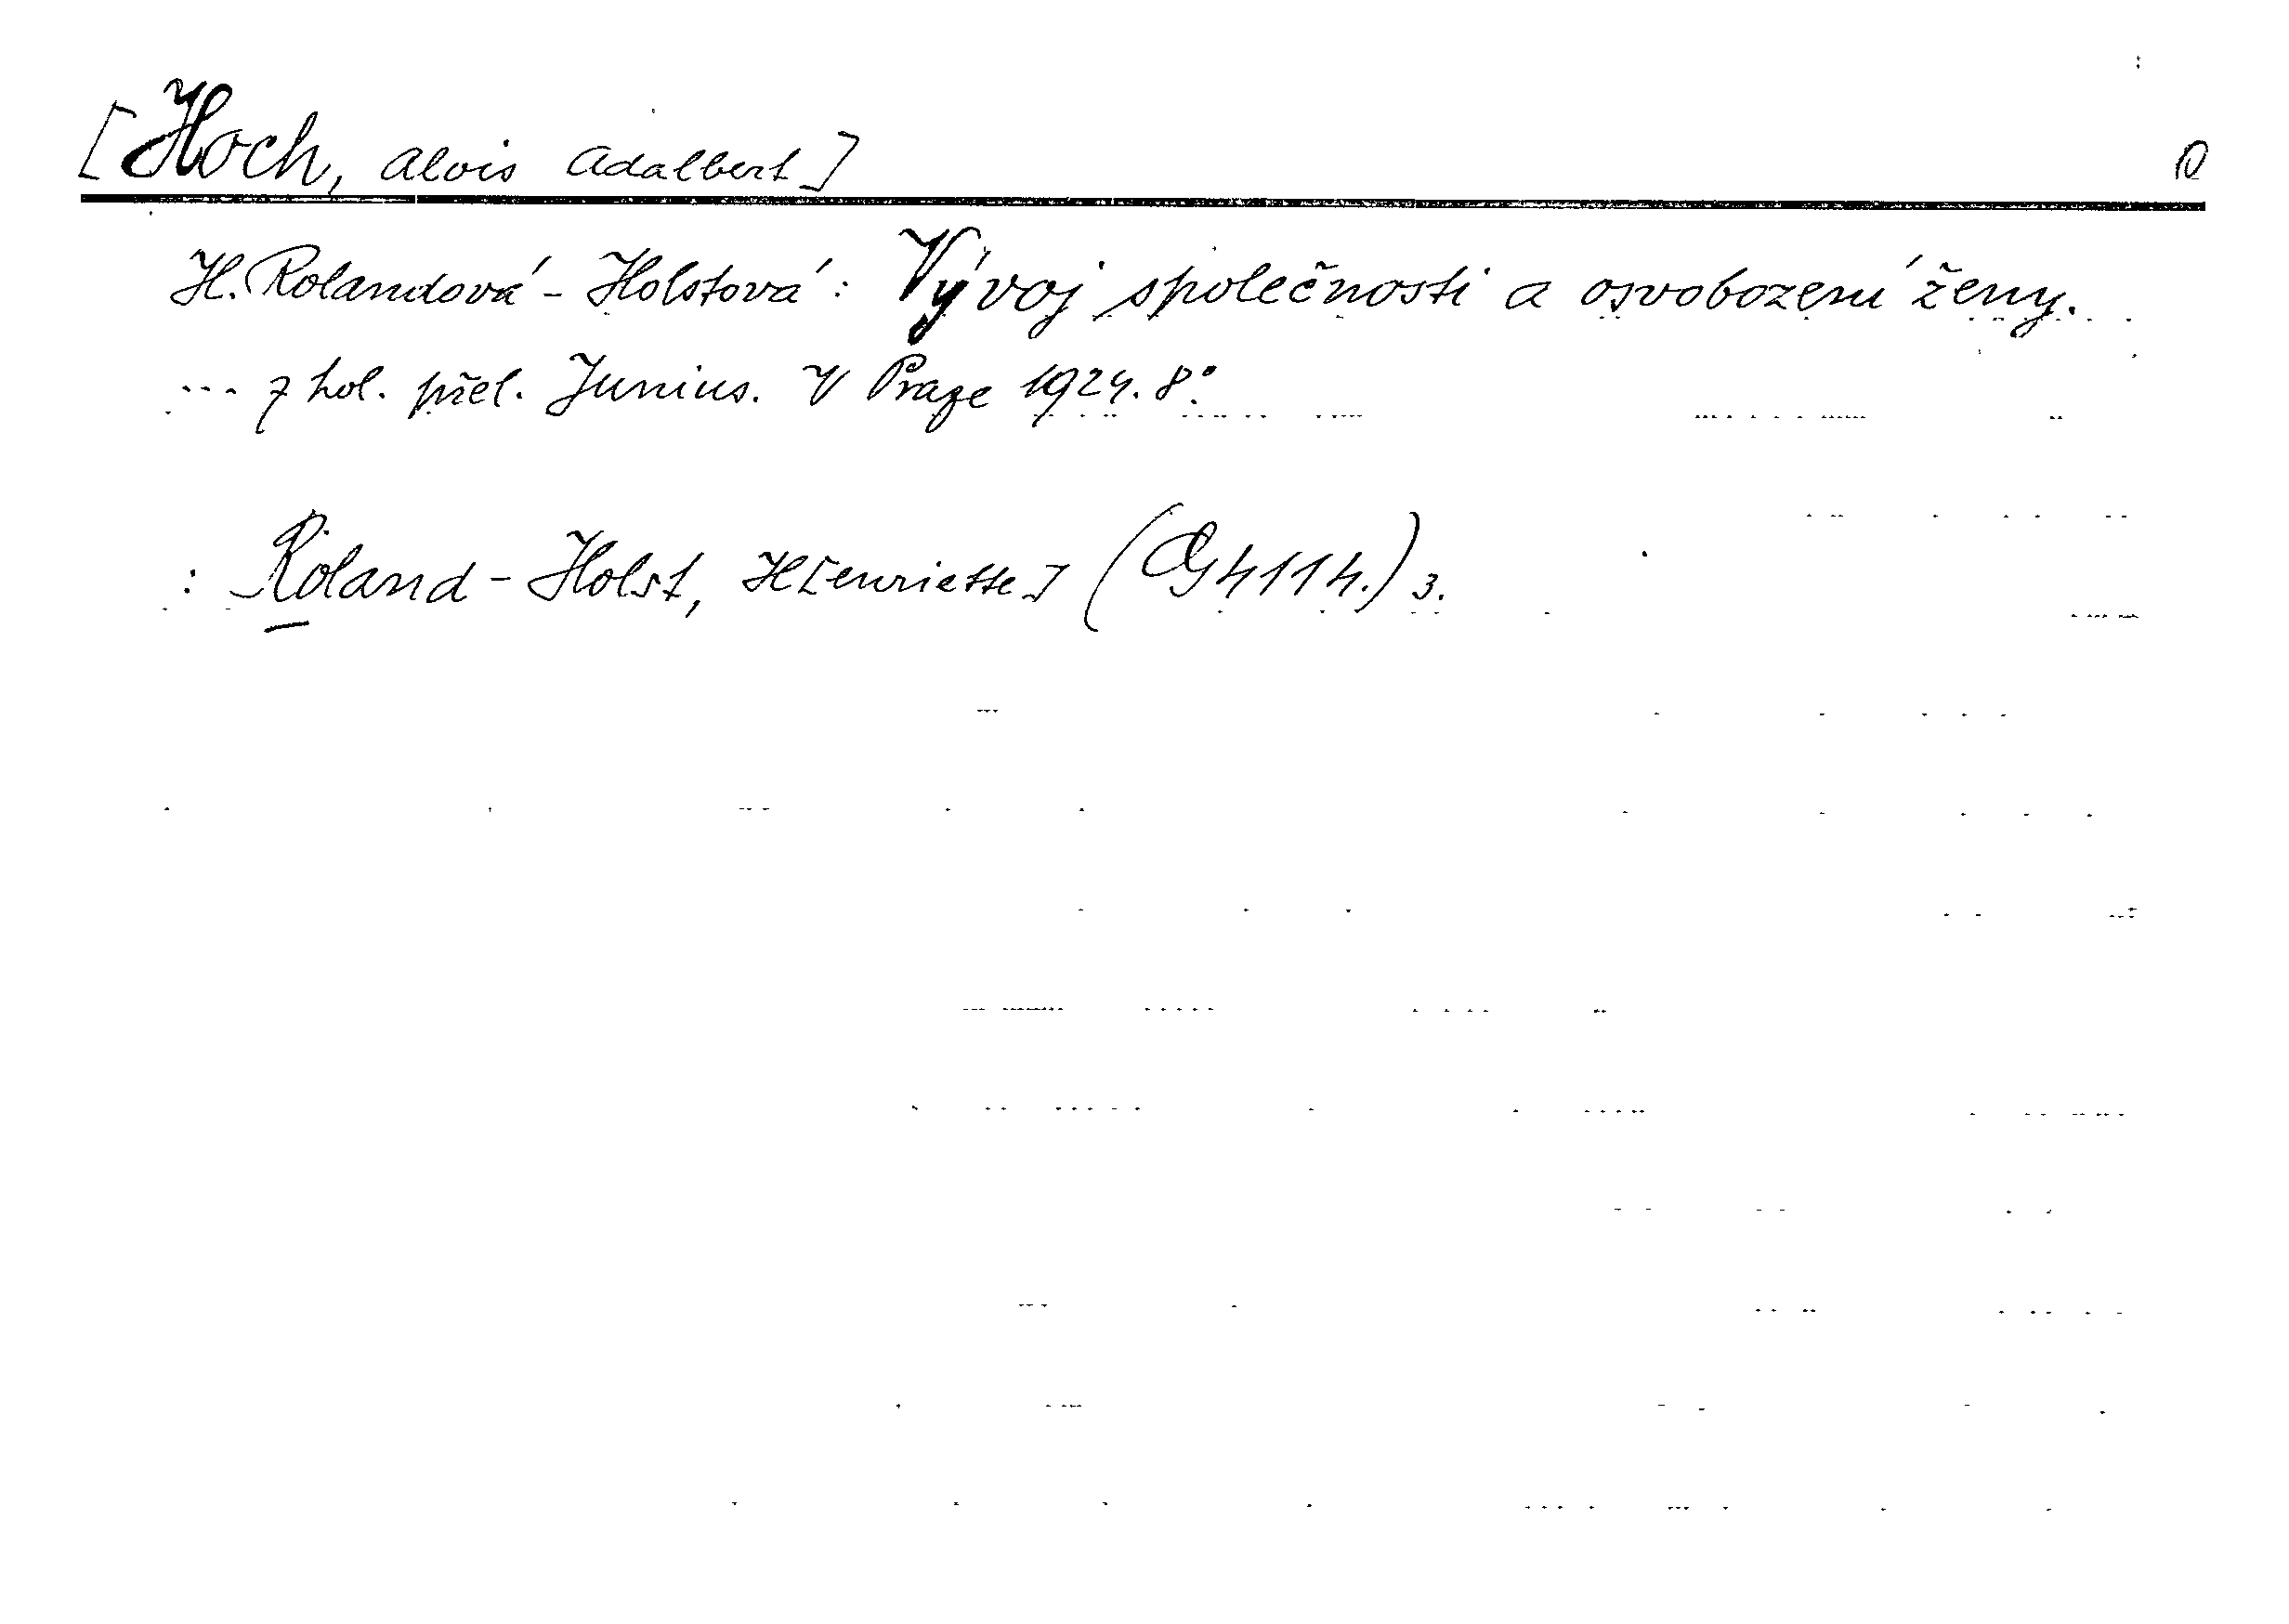 [Hoch, Alois Adalbert]
H. Rolandová - Holstová: Vývoj společnosti a osvobození ženy.
... Z hol. přel. Junius. V Praze 1924. 8°.
: Roland - Holst, H[enriette] (G 4114.) 3.